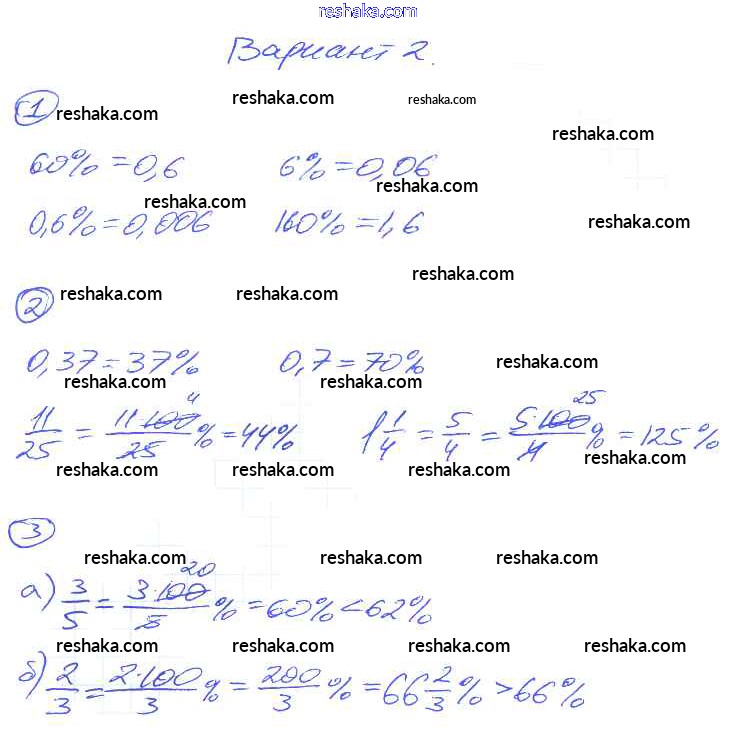 reshaka.com
Вариант 2.
1 reshaka.com reshaka.com reshaka.com
reshaka.com
60% = 0,6 6% = 0,06
reshaka.com
reshaka.com
0,6% = 0,006 160% = 1,6 reshaka.com
reshaka.com
2 reshaka.com reshaka.com
0,37 = 37% 0,7 = 70% reshaka.com
reshaka.com reshaka.com
11/25 = 11·100/25 % = 44% 1 1/4 = 5/4 = 5·100/4 % = 125%
4 25
reshaka.com reshaka.com reshaka.com reshaka.com
3
reshaka.com reshaka.com reshaka.com
а) 3/5 = 3·100/5 % = 60% < 62%
20
reshaka.com reshaka.com reshaka.com reshaka.com
б) 2/3 = 2·100/3 % = 200/3 % = 66 2/3 % > 66%